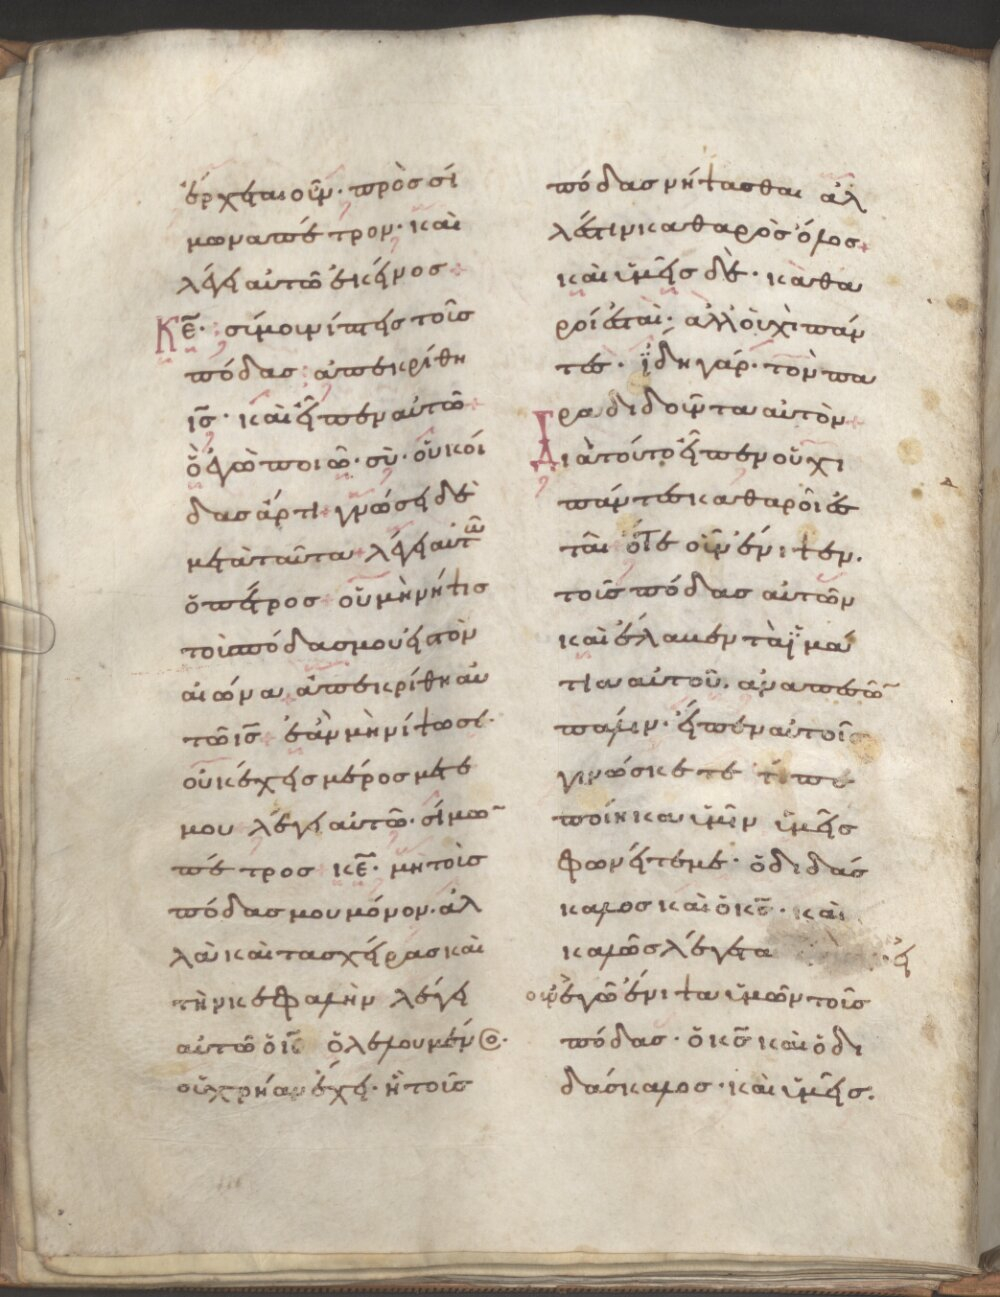 ἔρχεται οὖν· πρὸς σί
μωνα πέτρον· καὶ
λέγει αὐτῶ ἐκεῖνος
Κ͞ε· σίμοι νίπτεις τοῖς
πόδας· ἀπεκρίθη
ι͞ς· καὶ εἶπεν αὐτῶ
ὃ ἐγὼ ποιῶ· σὺ· οὐκ οί
δας ἄρτι γνώσει δὲ
μετὰ ταῦτα λέγει αὐτῶ
ὁ πέτρος οὐ μὴ νήψις
τοὶς πόδας μου εἰς τὸν
αἰῶνα ἀπεκρίθη αυ
τῶ ι͞ς ἐὰν μὴ νίψω σε·
οὐκ ἔχεις μέρος μετ ε
μου λέγει αὐτῶ· σίμω
πέτρος κ͞ε· μὴ τοὶς
πόδας μου μόνον· ἀλ
λὰ καὶ τας χεῖρας καὶ
τὴν κεφαλὴν λέγει
αὐτῶ ὁ ι͞ς ὁ λελουμένο·
οὐ χρήαν ἔχει· ἢ τοῖς
πόδας νήψασθαι ἀλ
λ έστιν καθαρὸς ὅλος
καὶ ὑμεῖς δὲ· καθα
ροί ἐσταὶ· ἀλλ ὀυχὶ πάν
τες· ἴδη γάρ· τὸν πα
ραδιδοῦντα αὐτὸν
Διὰ τούτο εἶπεν οὐχι
πάντες καθαροὶ ἐσ
ταὶ ὅτε οὖν ἔνιψεν·
τοῖς πόδας αὐτῶν
καὶ ἔλαμεν τὰ ἵμά
τια αὐτοῦ. ἀναπεσῶ
πάλιν· εἶπεν αὐτοῖς
γινώσκετε τί πε
ποίηκα ὑμῖν ὑμεῖς
φωνεῖτέ με· ὁ διδάσ
καλος καὶ ὁ κ͞ς· καὶ
καλῶς λέγετα · εἰ
οὖν ἐγὼ ἔνιψα ὑμῶν τοῖς
πόδας· ὁ κ͞ς καὶ ὁ δι
δάσκαλος· καὶ ὑμεῖς.